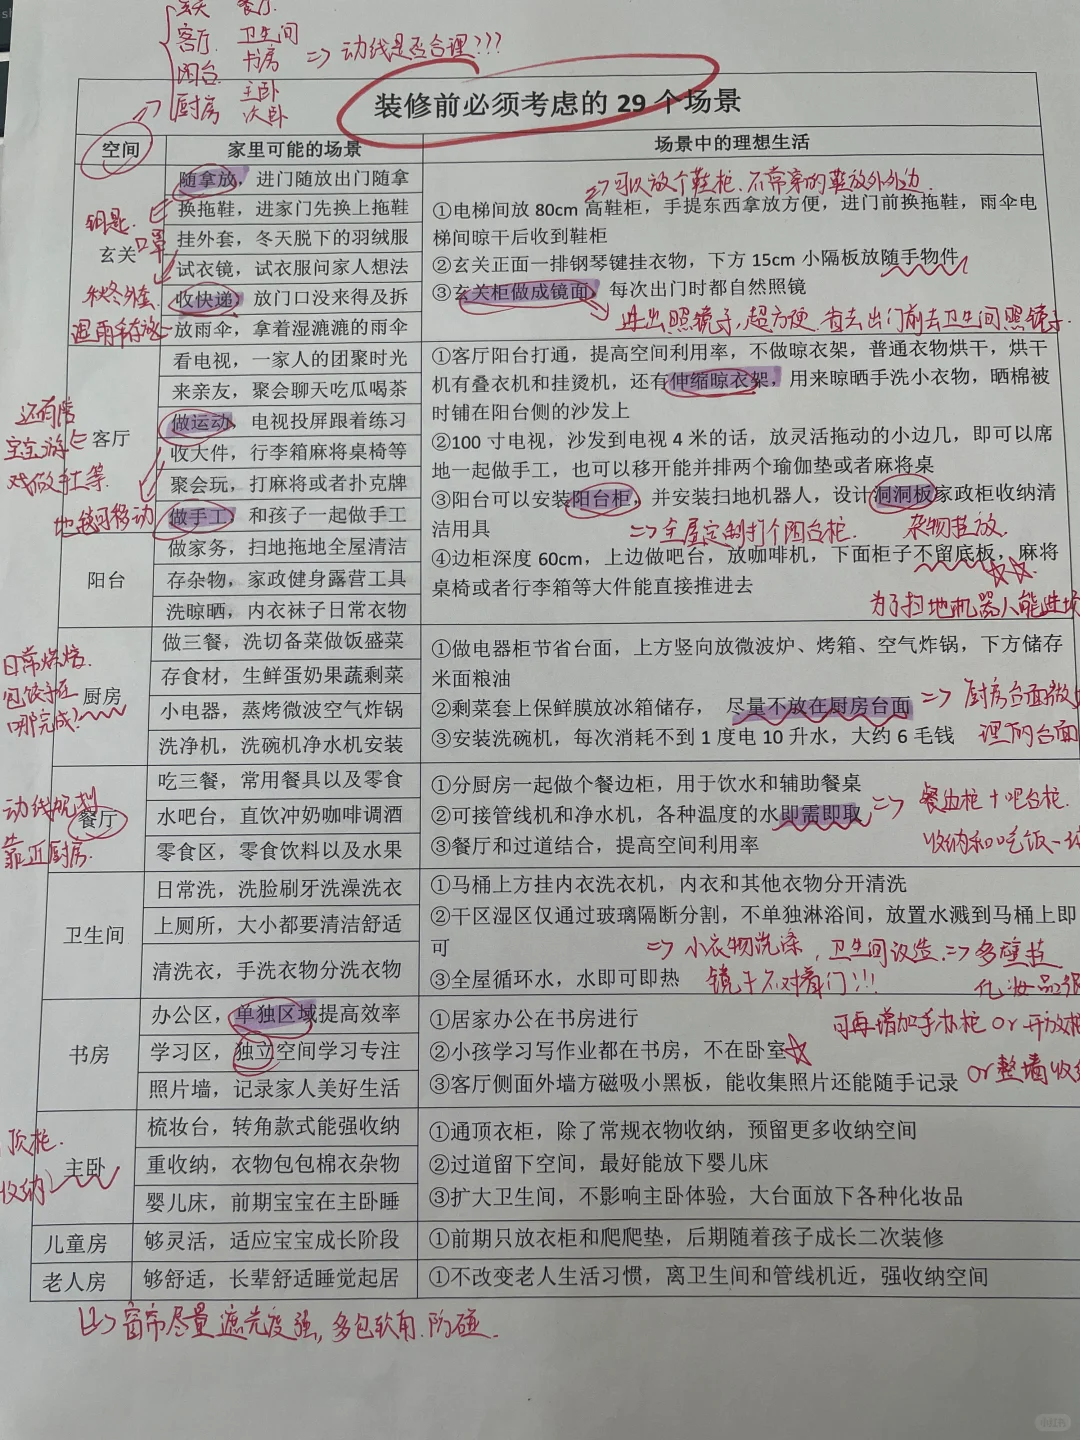 玄关 餐厅
客厅 卫生间
阳台 书房
厨房 主卧
次卧
=> 动线是否合理???
装修前必须考虑的 29 个场景
空间 家里可能的场景 场景中的理想生活
玄关
随拿放，进门随放出门随拿
换拖鞋，进家门先换上拖鞋
挂外套，冬天脱下的羽绒服
试衣镜，试衣服问家人想法
收快递，放门口没来得及拆
放雨伞，拿着湿漉漉的雨伞
钥匙
口罩
秋冬外套
=> 可以放个鞋柜.不常穿的鞋放外外边.
①电梯间放 80cm 高鞋柜，手提东西拿放方便，进门前换拖鞋，雨伞电
梯间晾干后收到鞋柜
②玄关正面一排钢琴键挂衣物，下方 15cm 小隔板放随手物件
③玄关柜做成镜面，每次出门时都自然照镜
进出照镜子,超方便.省去出门前去卫生间照镜子.
客厅
看电视，一家人的团聚时光
来亲友，聚会聊天吃瓜喝茶
做运动，电视投屏跟着练习
收大件，行李箱麻将桌椅等
聚会玩，打麻将或者扑克牌
做手工，和孩子一起做手工
还有陪
宝宝游
戏做手工等.
地毯可移动
阳台
做家务，扫地拖地全屋清洁
存杂物，家政健身露营工具
洗晾晒，内衣袜子日常衣物
①客厅阳台打通，提高空间利用率，不做晾衣架，普通衣物烘干，烘干
机有叠衣机和挂烫机，还有伸缩晾衣架，用来晾晒手洗小衣物，晒棉被
时铺在阳台侧的沙发上
②100 寸电视，沙发到电视 4 米的话，放灵活拖动的小边几，即可以席
地一起做手工，也可以移开能并排两个瑜伽垫或者麻将桌
③阳台可以安装阳台柜，并安装扫地机器人，设计洞洞板家政柜收纳清
洁用具
=> 全屋定制打个阳台柜. 杂物挂放.
④边柜深度 60cm，上边做吧台，放咖啡机，下面柜子不留底板，麻将
桌椅或者行李箱等大件能直接推进去
为了扫地机器人能进
厨房
做三餐，洗切备菜做饭盛菜
存食材，生鲜蛋奶果蔬剩菜
小电器，蒸烤微波空气炸锅
洗净机，洗碗机净水机安装
日常烘焙.
包饺子在
哪完成?
①做电器柜节省台面，上方竖向放微波炉、烤箱、空气炸锅，下方储存
米面粮油
②剩菜套上保鲜膜放冰箱储存， 尽量不放在厨房台面
③安装洗碗机，每次消耗不到 1 度电 10 升水，大约 6 毛钱
=> 厨房台面做
理的台面
餐厅
吃三餐，常用餐具以及零食
水吧台，直饮冲奶咖啡调酒
零食区，零食饮料以及水果
动线规划
靠近厨房.
①分厨房一起做个餐边柜，用于饮水和辅助餐桌
②可接管线机和净水机，各种温度的水即需即取
③餐厅和过道结合，提高空间利用率
=> 餐边柜+吧台柜.
收纳和吃饭一
卫生间
日常洗，洗脸刷牙洗澡洗衣
上厕所，大小都要清洁舒适
清洗衣，手洗衣物分洗衣物
①马桶上方挂内衣洗衣机，内衣和其他衣物分开清洗
②干区湿区仅通过玻璃隔断分割，不单独淋浴间，放置水溅到马桶上即
可
③全屋循环水，水即可即热
=> 小衣物洗涤，卫生间改造. => 多壁挂
镜子不对着门!!! 化妆品
书房
办公区，单独区域提高效率
学习区，独立空间学习专注
照片墙，记录家人美好生活
①居家办公在书房进行
②小孩学习写作业都在书房，不在卧室
③客厅侧面外墙方磁吸小黑板，能收集照片还能随手记录
可再增加手办柜 or 开放柜
or 整墙收
主卧
梳妆台，转角款式能强收纳
重收纳，衣物包包棉衣杂物
婴儿床，前期宝宝在主卧睡
顶柜.
收纳
①通顶衣柜，除了常规衣物收纳，预留更多收纳空间
②过道留下空间，最好能放下婴儿床
③扩大卫生间，不影响主卧体验，大台面放下各种化妆品
儿童房 够灵活，适应宝宝成长阶段 ①前期只放衣柜和爬爬垫，后期随着孩子成长二次装修
老人房 够舒适，长辈舒适睡觉起居 ①不改变老人生活习惯，离卫生间和管线机近，强收纳空间
=> 窗帘尽量遮光度强,多包软角.防碰.
小红书